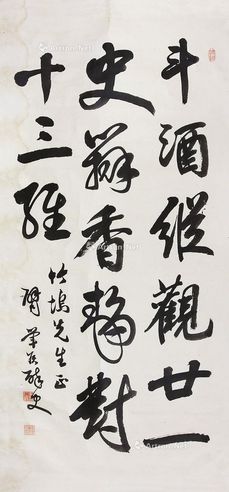 斗酒縱觀廿一
史瓣香靜對
十三經
竹塢先生正